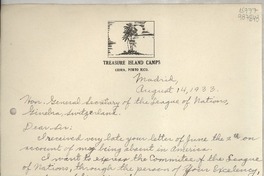 TREASURE ISLAND CAMPS
CIDRA, PORTO RICO.
Madrid,
August 14, 1933.
Hon. General Secretary of the League of Nations,
Geneva, Switzerland.
Dear Sir:
I received very late your letter of June the 2th on
account of my being absent in America.
I want to express the Committee of the League
of Nations, through the person of Your Excelency,